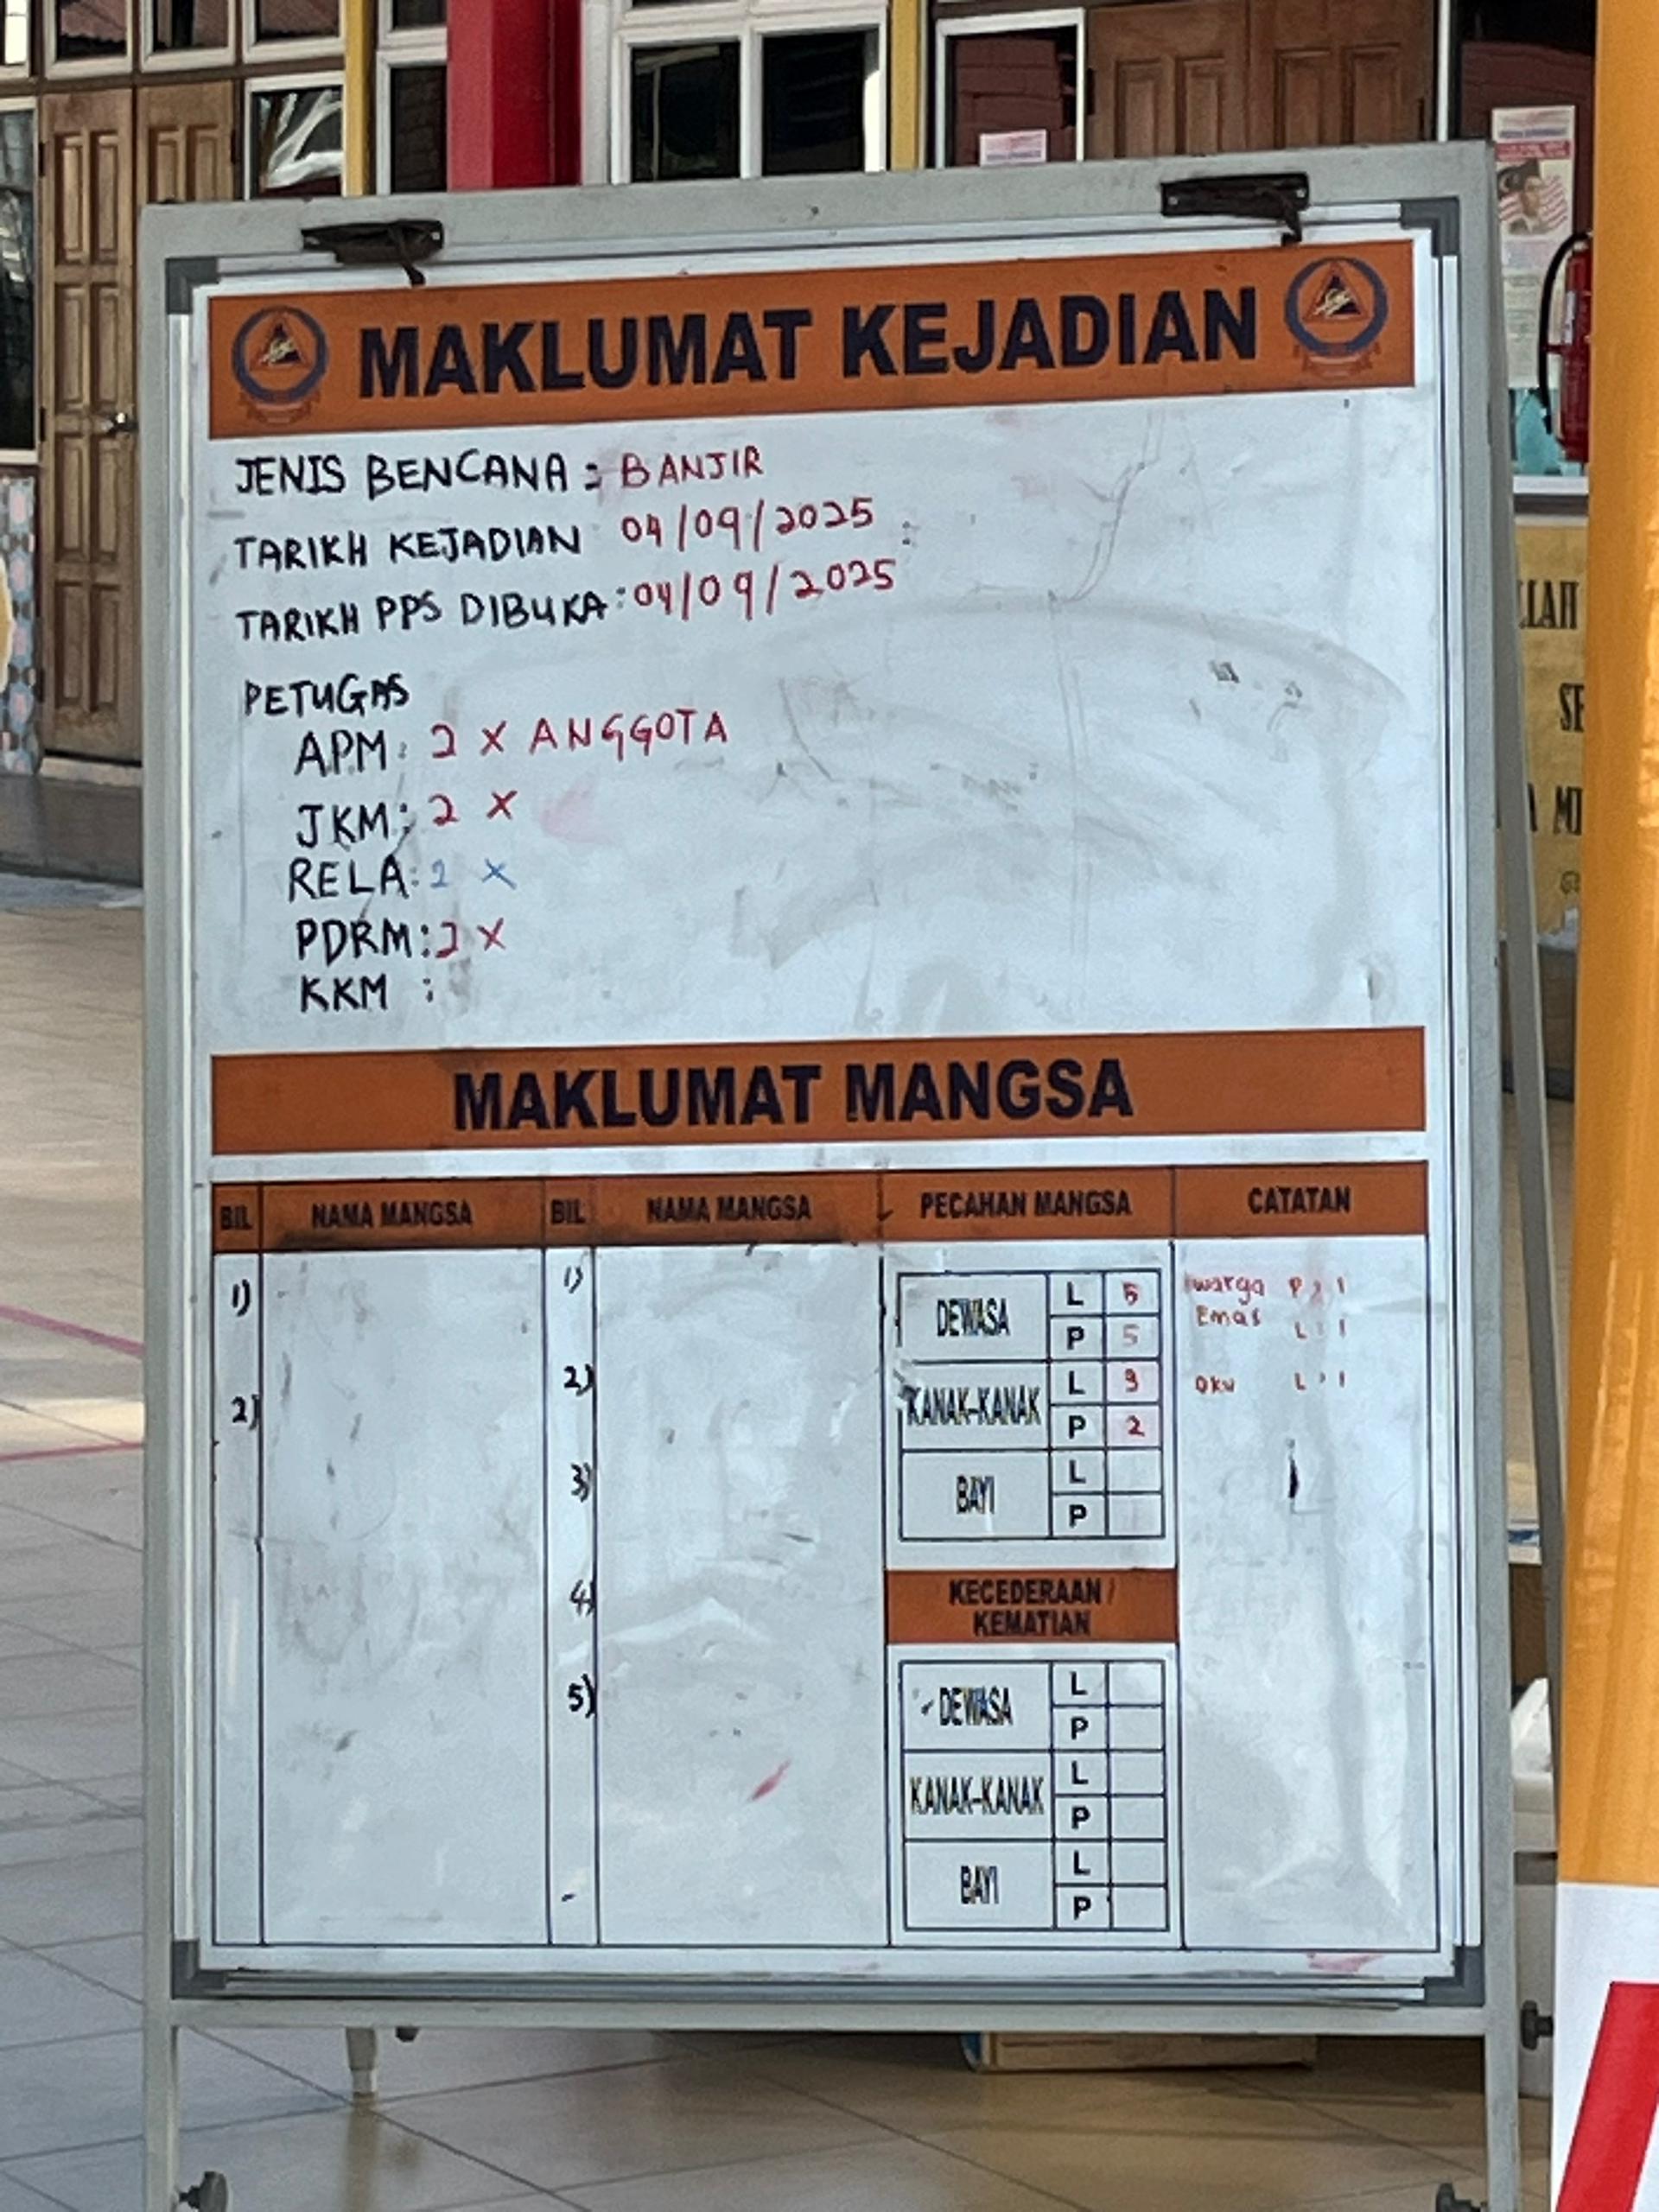 MAKLUMAT KEJADIAN
JENIS BENCANA : BANJIR
TARIKH KEJADIAN 04/09/2025 :
TARIKH PPS DIBUKA : 04/09/2025
PETUGAS
APM : 2 X ANGGOTA
JKM : 2 X
RELA : 2 X
PDRM : 2 X
KKM :
MAKLUMAT MANGSA
BIL NAMA MANGSA BIL NAMA MANGSA PECAHAN MANGSA CATATAN
1) 1)
2) 2)
3)
4)
5)
DEWASA L 5
P 5
KANAK-KANAK L 3
P 2
BAYI L
P
warga P : 1
Emas L : 1
OKU L : 1
KECEDERAAN /
KEMATIAN
DEWASA L
P
KANAK-KANAK L
P
BAYI L
P